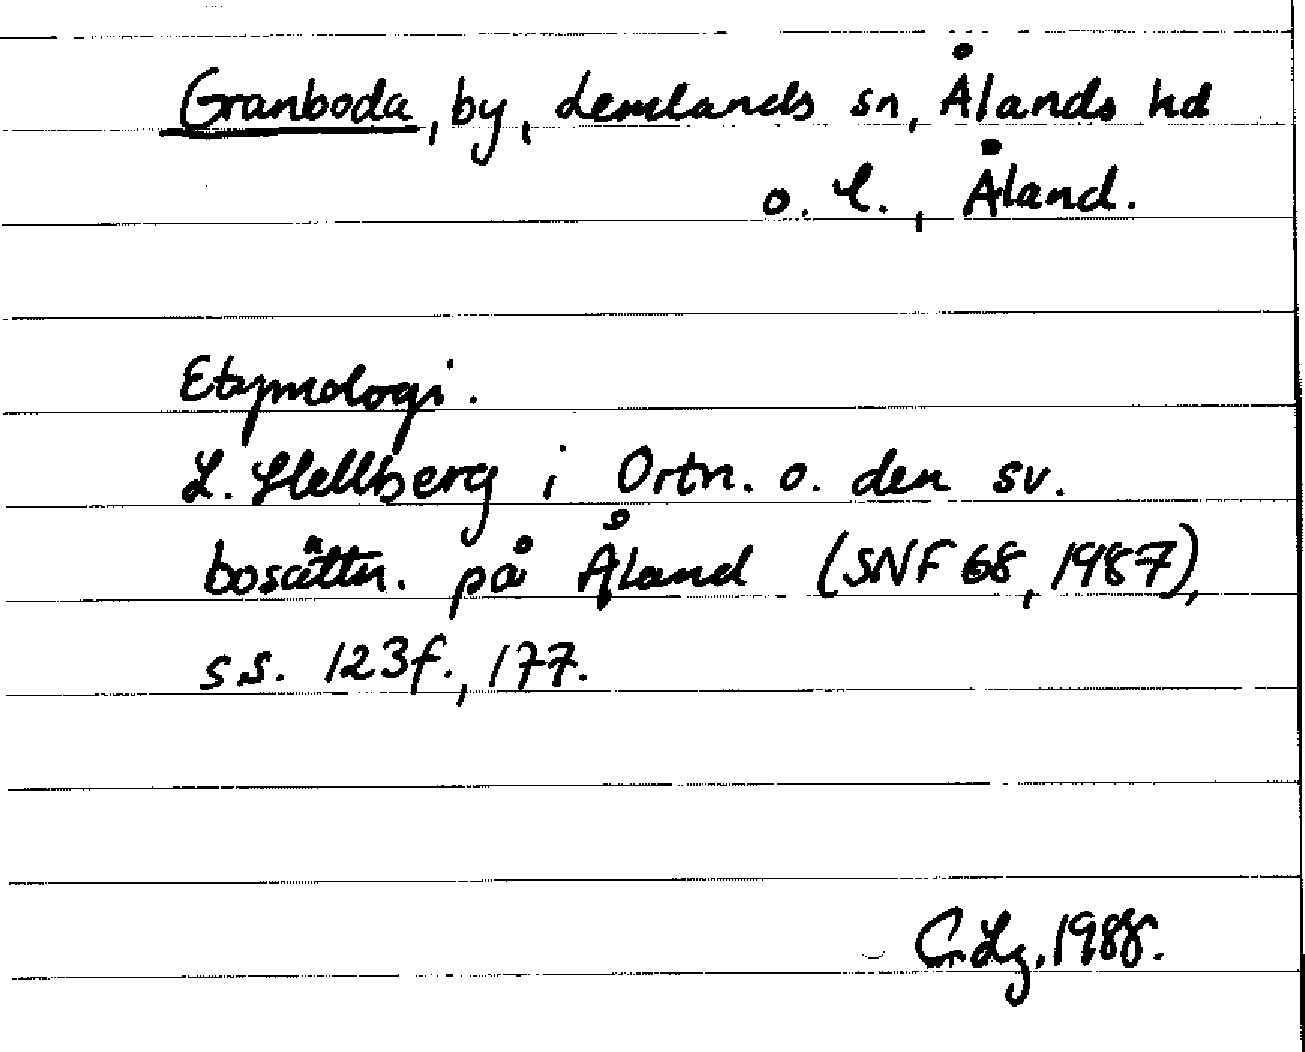 Granboda, by, Lemlands sn, Ålands hd
o. l., Åland.
Etymologi.
L. Hellberg i Ortn. o. den sv.
bosättn. på Åland (SNF 68, 1987),
s.s. 123f., 177.
C. Lg. 1988.